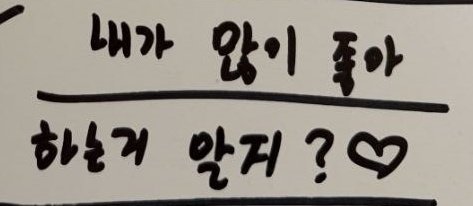 내가 많이 좋아
하는거 알지?♡